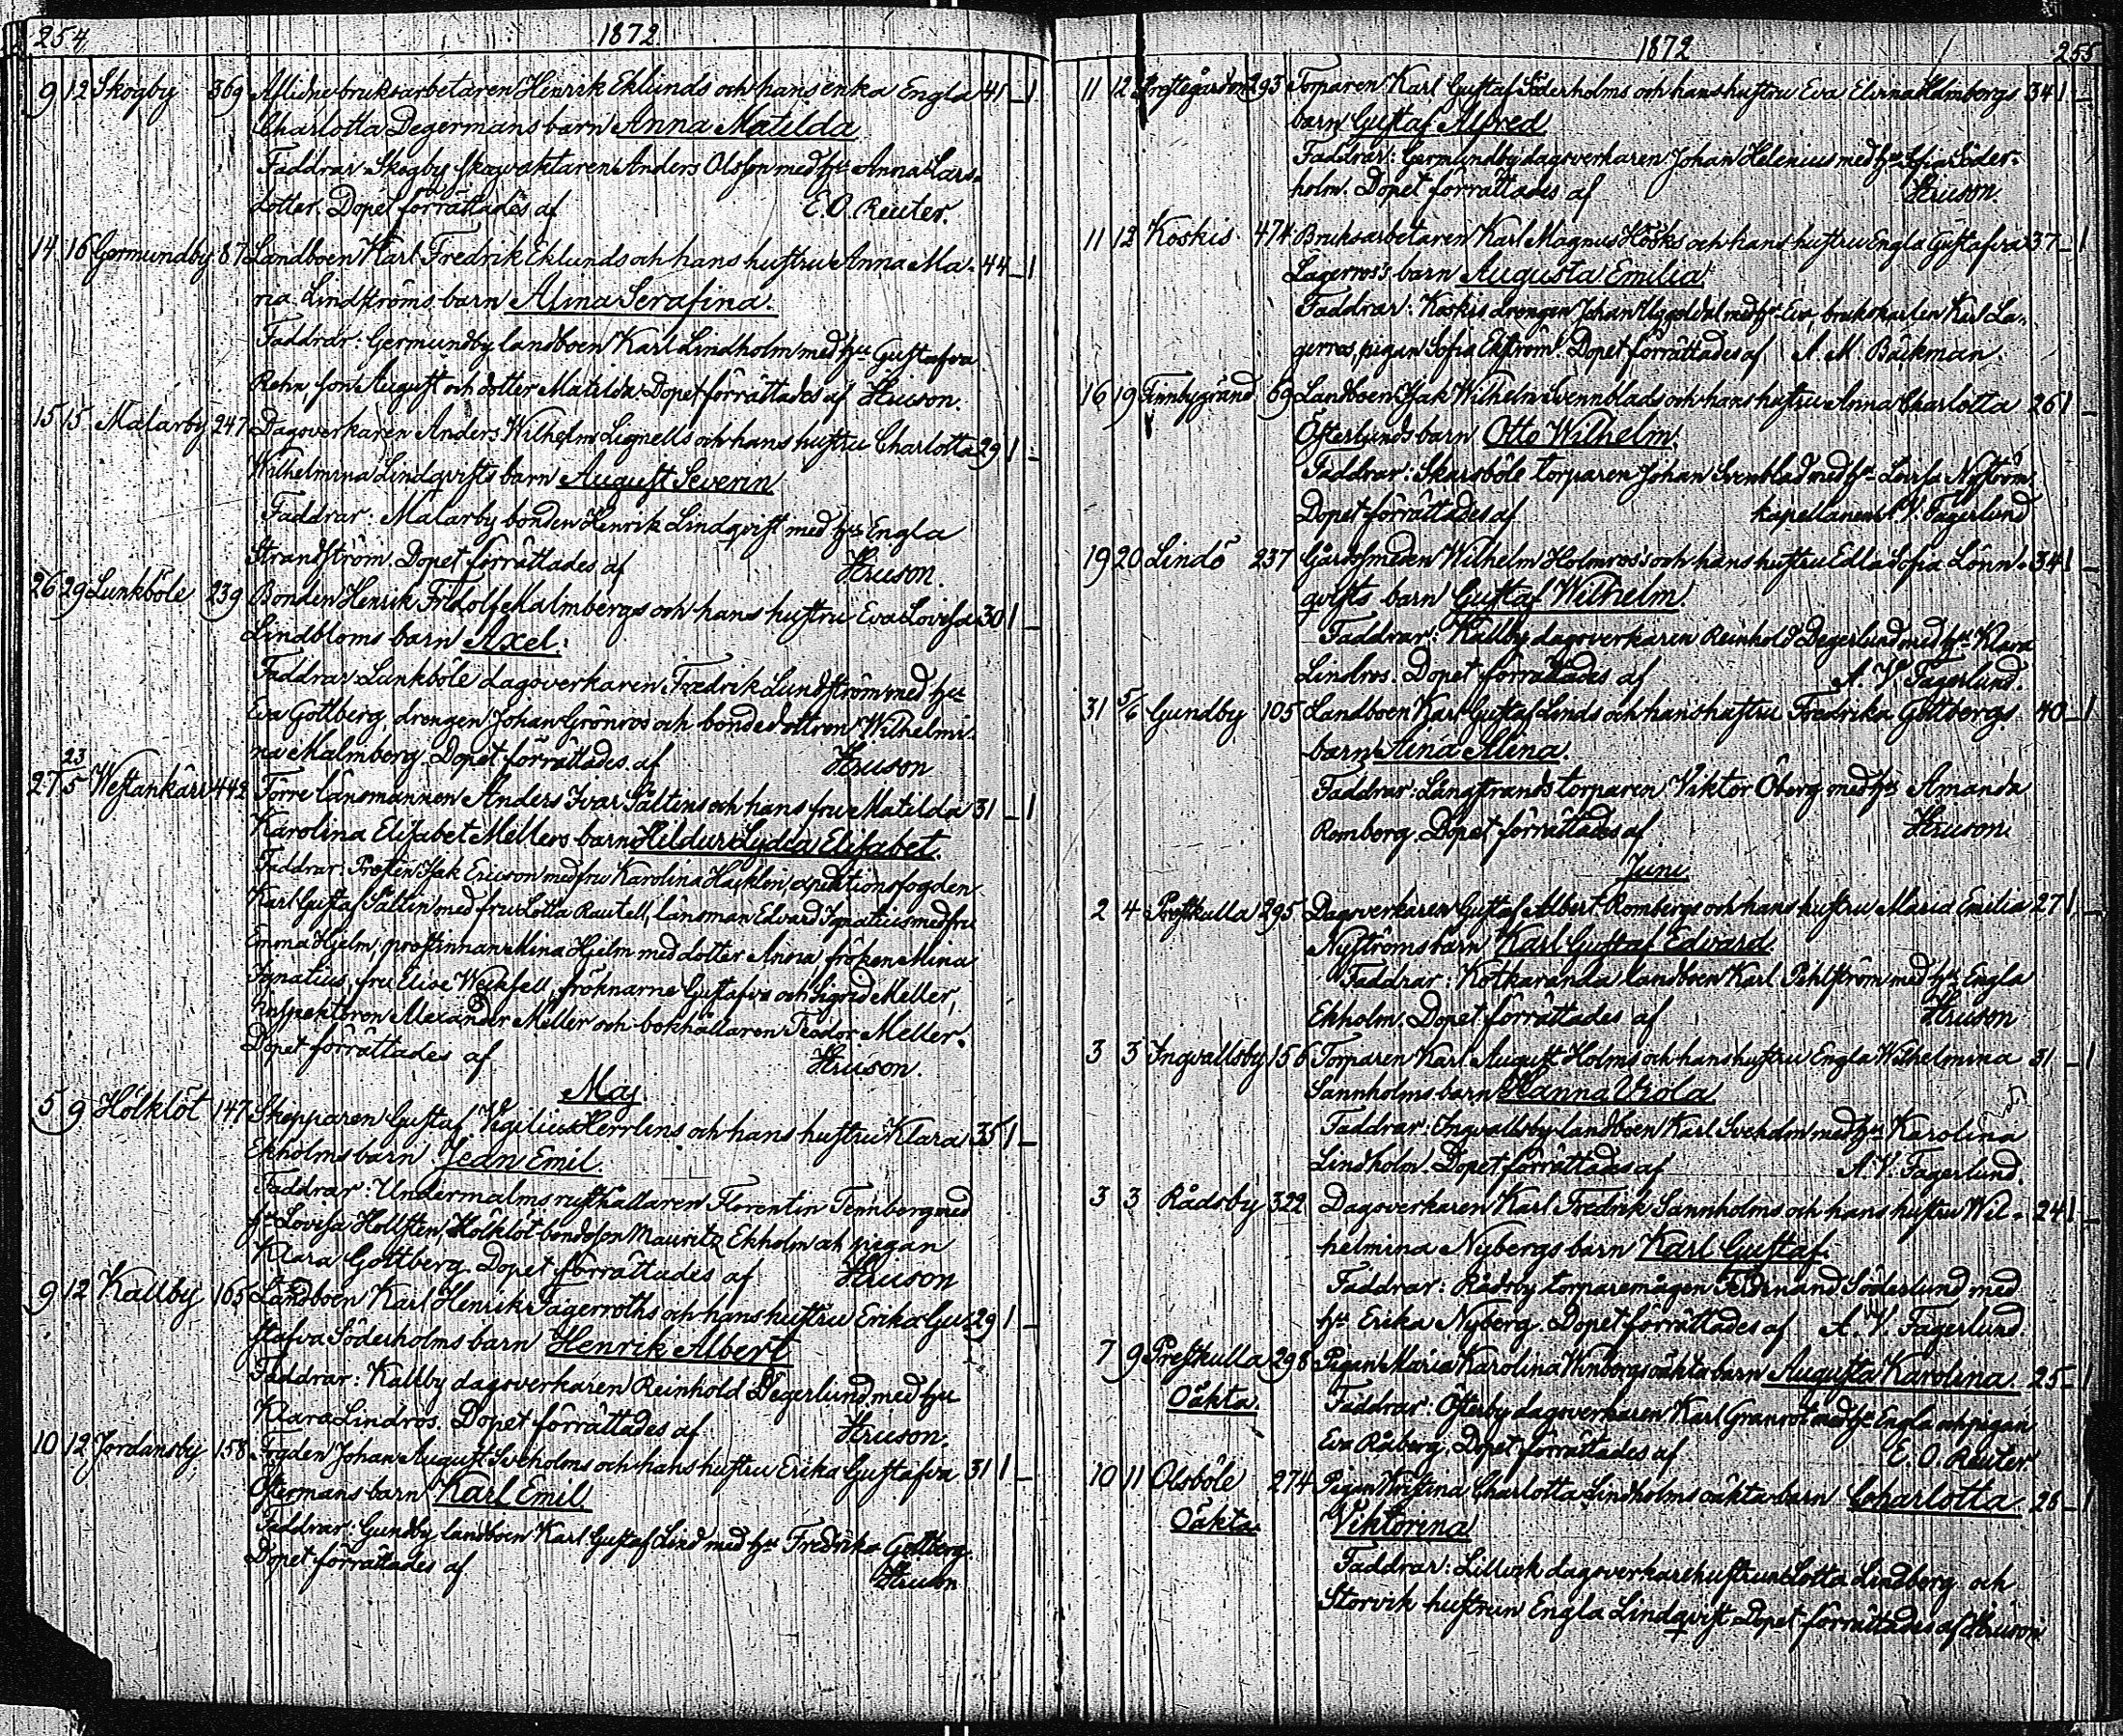 254 1872
9 12 Skogby 369 Aflidne bruksarbetaren Henrik Eklunds och hans enka Engla 45 _ 1
Charlotta Degermans barn Anna Matilda
Faddrar Skogby skogvaktaren Anders Olsson med hu Anna Lars-
dotter. Dopet förrättades af E. O. Reuter.
14 16 Germundby 87 Landboen Karl Fredrik Eklunds och hans hustru Anna Ma- 44 _ 1
ria Lindströms barn Alina Serafina.
Faddrar: Germundby landboen Karl Lindholm med hu Gustafva
Rehn, son August och dotter Matilda. Dopet förrättades af
15 15 Malarby 247 Dagsverkaren Anders Wilhelm Lignells och hans hustru Charlotta 29 1 _
Wilhelmina Lindqvists barn August Severin
Faddrar: Malarby bonden Henrik Lindqvist med hu Engla
Strandström. Dopet förrättades af
26 29 Lunkböle 239 Bonden Henrik Fridolf Malmbergs och hans hustru Eva Lovisa 30 1 _
Lindbloms barn Axel.
Faddrar Lunkböle dagsverkaren Fredrik Lundström med hu
Eva Gottberg drengen Johan Grönros och bondedottron Wilhelmi-
na Malmberg. Dopet förrättades af
27 23/5 Westankärr 442 Förre länsmannen Anders Ivar Sältins och hans fru Matilda 31 _ 1
Karolina Elisabet Mellers barn Hildur Lydia Elisabet.
Faddrar: Prosten Isak Ericson med fru Karolina expeditionsfogden
Karl Gustaf Sältin med fru Lotta Rautell, länsman Edvard Ignatius med fru
Emma Hjelm, prostinnan Mina Hjelm med dotter Anna fröken Mina
Ignatius, fru Elise fröknarne Gustafva och Sigrid Meller,
inspektoren Alexander Meller och bokhållaren Teodor Meller.
Dopet förrättades af
Maj.
5 9 Hölklöt 147 Skepparen Gustaf Vigilius Herrlins och hans hustru Klara 35 1 _
Ekholms barn Jean Emil.
Faddrar: Undermalms rusthållaren Florentin Tennberg med
hu Lovisa Hollsten, Hölklöt bondeson Mauritz Ekholm och pigan
Klara Gottberg. Dopet förrättades af
9 12 Kallby 165 Landboen Karl Henrik Fagerroths och hans hustru Erika Gu- 29 1 _
stafva Söderholms barn Henrik Albert
Faddrar: Kallby dagsverkaren Reinhold Degerlund med hu
Klara Lindros. Dopet förrättades af
10 12 Jordansby 158 Fogden Johan August Sveholms och hans hustru Erika Gustafva 31 1 _
Östermans barn Karl Emil.
Faddrar: Gundby landboen Karl Gustaf Lind med hu Fredrika Gottberg.
Dopet förrättades af
1872 255
11 12 Prestegården 293 Torparen Karl Gustaf Söderholms och hans hustru Eva Elvina Holmbergs 34 1 _
barn Gustaf Alfred
Faddrar: Germundby dagsverkaren Johan Helenius med hu Sofia Söder-
holm. Dopet förrättades af
11 12 Koskis 474 Bruksarbetaren Karl Magnus Hööks och hans hustru Engla Gustafva 37 _ 1
Lagerros's barn Augusta Emilia.
Faddrar: Koskis drengen Johan med hu Eva, brukskarlen Karl La-
gerros, pigan Sofia Ekström. Dopet förrättades af A. M. Bäckman.
16 19 Finnbygränd 69 Landboen Isak Wilhelm Svennblads och hans hustru Anna Charlotta 26 1 _
Österlunds barn Otto Wilhelm.
Faddrar: Skarsböle torparen Johan Svenblad med hu Lovisa Nyström.
Dopet förrättades af kapellanen A. V. Fagerlund
19 20 Lindö 237 Gårdssmeden Wilhelm Holmros's och hans hustru Edla Sofia Lönn- 34 1
qvists barn Gustaf Wilhelm.
Faddrar: Kallby dagsverkaren Reinhold Degerlund med hu Klara
Lindros. Dopet förrättades af A. V. Fagerlund.
31 5/6 Gundby 105 Landboen Karl Gustaf Linds och hans hustru Fredrika Gottbergs 40 _ 1
barn Aina Alina.
Faddrar: Långstrands torparen Viktor Öberg med hu Amanda
Romberg. Dopet förrättades af
Juni
2 4 Prestkulla 295 Dagsverkaren Gustaf Albert Rombergs och hans hustru Maria Emilia 27 1 _
Nyströms barn Karl Gustaf Edvard.
Faddrar: Kotkaranda landboen Karl Pihlström med hu Engla
Ekholm. Dopet förrättades af
3 3 Ingvallsby 156 Torparen Karl August Holms och hans hustru Engla Wilhelmina 31 _ 1
Sannholms barn Hanna Viola
Faddrar: Ingvallsby landboen Karl Sveholm med hu Karolina
Lindholm. Dopet förrättades af A. V. Fagerlund.
3 3 Rådsby 322 Dagsverkaren Karl Fredrik Sannholms och hans hustru Wil- 24 1 _
helmina Nybergs barn Karl Gustaf.
Faddrar: Rådsby torparemågen Ferdinand Söderlund med
hu Erika Nyberg. Dopet förrättades af A. V. Fagerlund.
7 9 Prestkulla 298 Pigan Maria Karolina Winbergs oäkta barn Augusta Karolina. 25 _ 1
Oäkta. Faddrar: Österby dagsverkaren Karl Granrot med hu Engla och pigan
Eva Råberg. Dopet förrättades af E. O. Reuter
10 11 Olsböle 274 Pigan Kristina Charlotta Lindholms oäkta barn Charlotta 28 _ 1
Oäkta. Viktorina
Faddrar: Lillvik dagsverkarehustrun Lotta Lindberg och
Storvik hustrun Engla Lindqvist. Dopet förrättades af